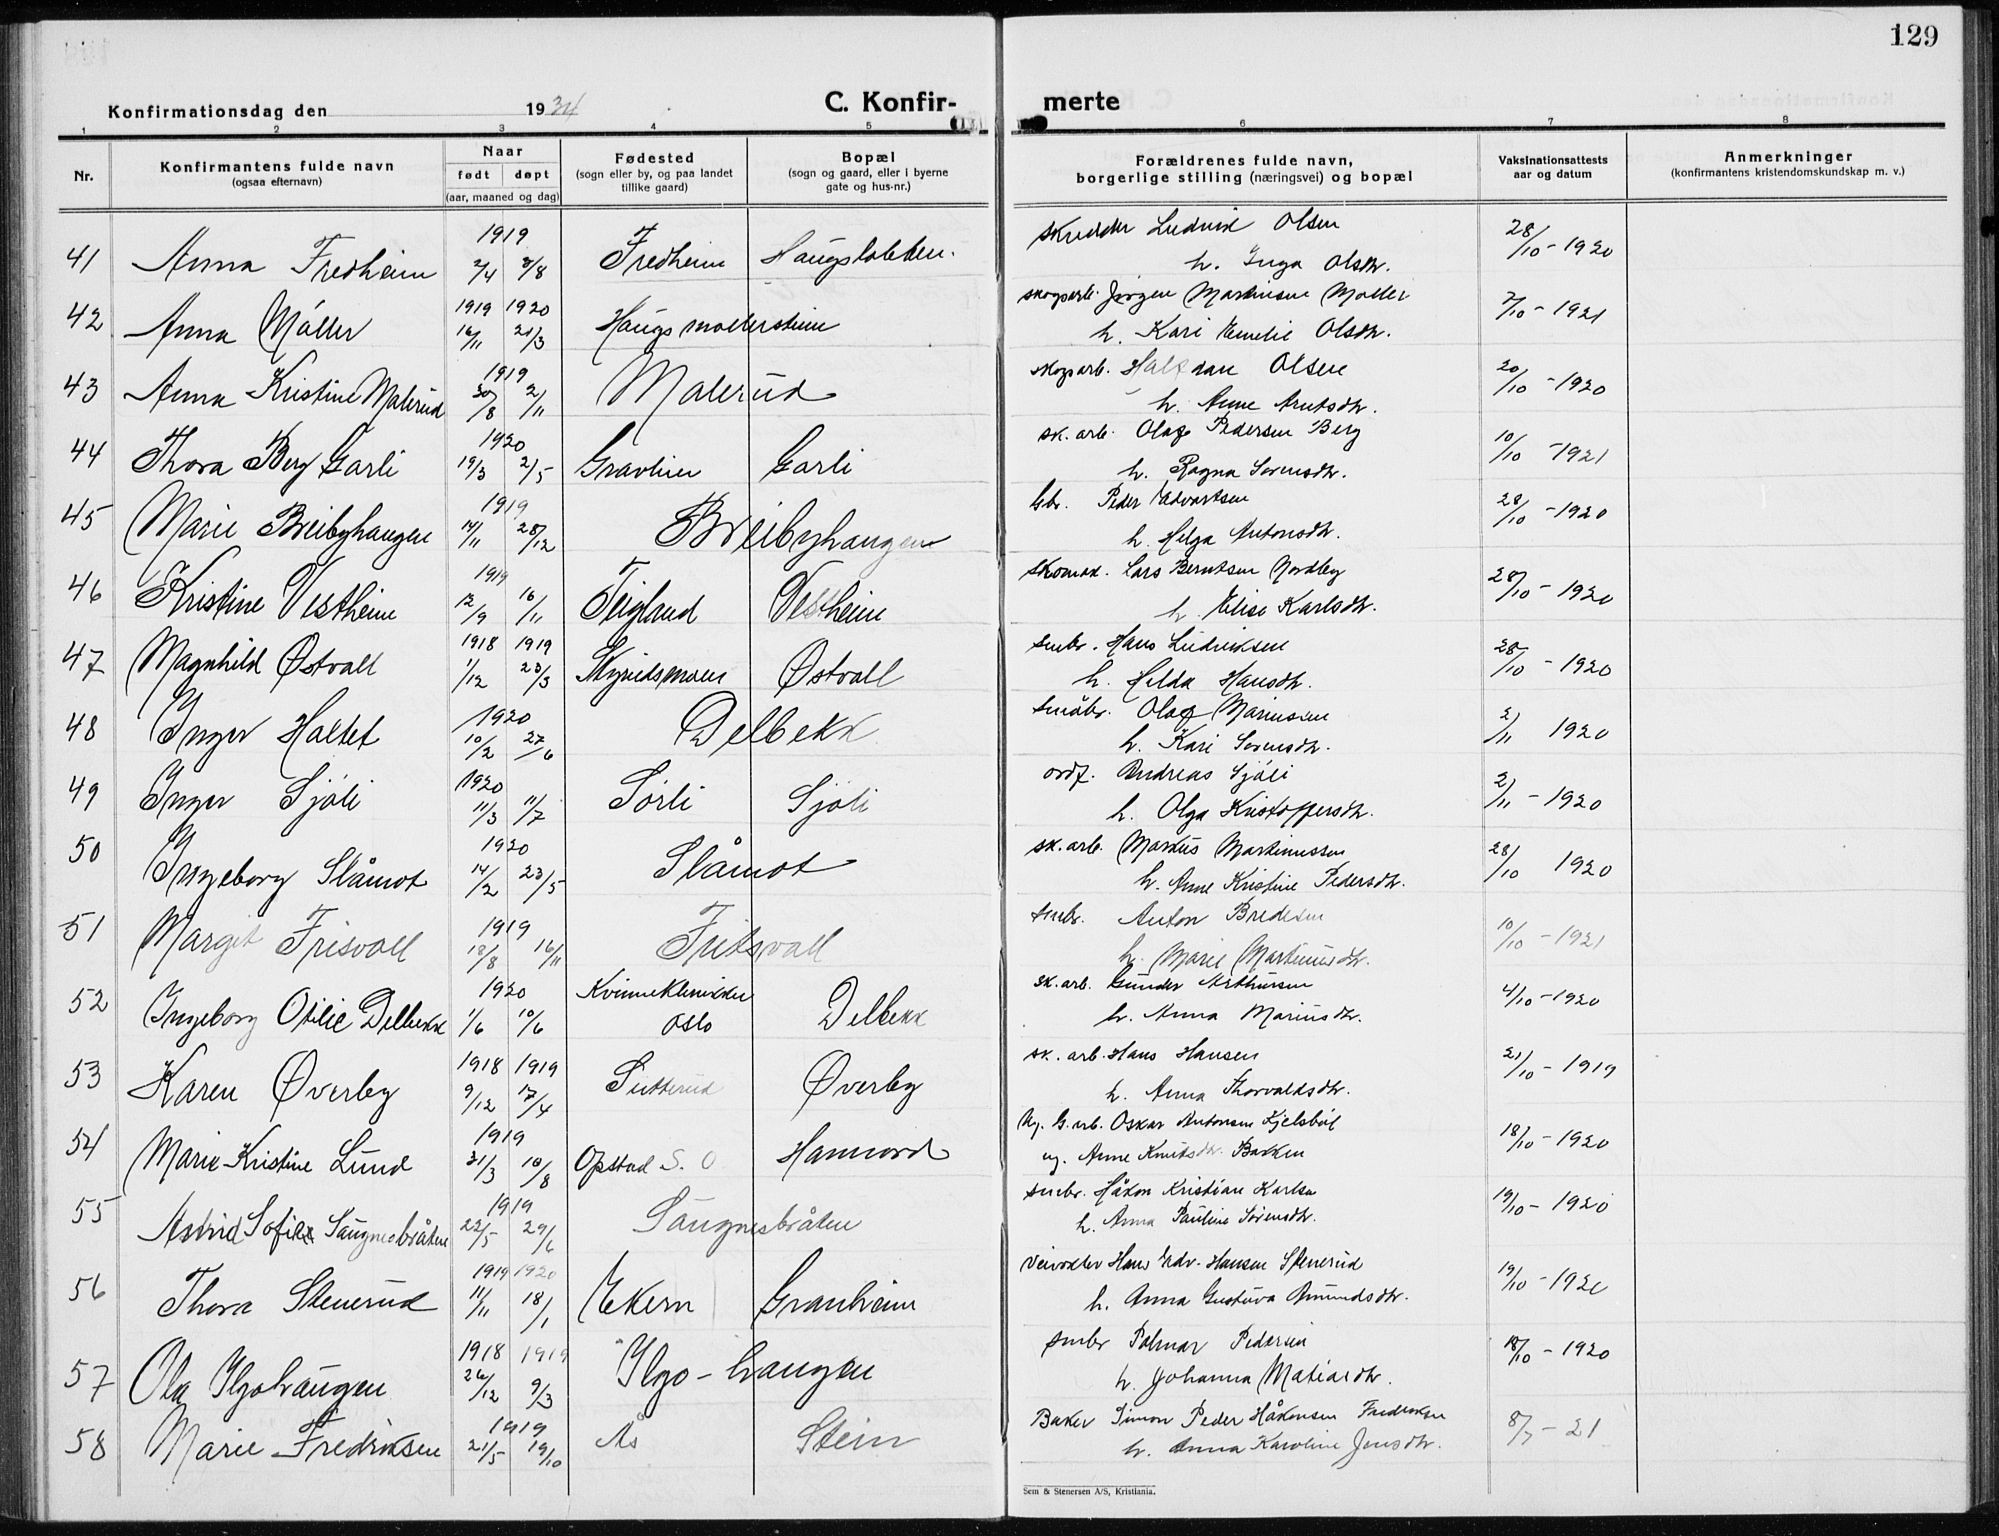 129
Konfirmationsdag den 1934 C. Konfir- merte
1 2 3 4 5 6 7 8
Nr. Konfirmantens fulde navn (ogsaa efternavn) Naar født døpt (aar, maaned og dag) Fødested (sogn eller by, og paa landet tillike gaard) Bopæl (sogn og gaard, eller i byerne gate og hus-nr.) Forældrenes fulde navn, borgerlige stilling (næringsvei) og bopæl Vaksinationsattests aar og datum Anmerkninger (konfirmantens kristendomskundskap m. v.)
1919 skredder Ludvik Olsen
41 Anna Fredheim 2/4 3/8 Fredheim Haugslokken. h. Inga Olsdtr. 28/10 - 1920
1919 1920 skogsarb. Jørgen Martinsen Møller
42 Anna Møller 16/11 21/3 h. Kari Emelie Olsdtr. 7/10 - 1921
1919 skogsarb. Halfdan Olsen
43 Anna Kristine Malerud 30/8 2/11 Malerud h. Anne 20/10 - 1920
1920 sk. arb. Olaf Pedersen Berg
44 Thora Berg Garli 19/3 2/5 Gravlien Garli h. Ragna Sorensdtr. 10/10 - 1921
1919 Gbr. Peder Edvartsen
45 Marie Breibyhaugen 14/11 28/12 Breibyhaugen h. Helga Antonsdtr. 28/10 - 1920
1919 Skomak. Lars Berntsen Nordby
46 Kristine Vestheim 12/9 16/11 Teigland Vestheim h. Elise Karlsdtr. 28/10 - 1920
1918 1919 smbr. Hans Ludviksen
47 Magnhild Østvoll 1/12 23/3 Østvoll h. Hilda Hansdtr. 28/10 - 1920
1920 småbr. Olaf Mariusen
48 Inger Haltet 10/2 27/6 Delbekk h. Kari Sorensdtr. 2/11 1920
1920 ordf. Andreas Sjøli
49 Inger Sjøli 11/3 11/7 Sørli Sjøli h. Olga Kristoffersdtr. 2/11 - 1920
1920 sk. arb. Martinussen
50 Ingeborg Slåmot 14/2 23/5 Slåmot h. Anne Kristine Pedersdtr. 28/10 1920
1919 smbr. Anton Bredesen
51 Margit Frisvoll 18/8 16/11 Fritsvoll h. Marie Martinusdtr. 10/10 - 1921
1920 Kvinneklinikken sk. arb. Gunder Arthursen
52 Ingeborg Otilie Delbekk 1/6 10/6 Oslo Delbekk h. Anna Mariusdtr. 4/10 - 1920
1918 1919 sk. arb. Hans Hansen
53 Karen Øverby 9/12 17/4 Sutterud Øverby h. Anna Thorvaldsdtr. 21/10 - 1919
1919 Ug. G. arb. Oskar Antonsen Kjelsbøl
54 Marie Kristine Lund 31/3 10/8 Opstad S. O. Hamnord ug. Anne Knutsdtr. Bakken 18/10 - 1920
1919 smbr. Håkon Kristian Karlsen
55 Astrid Sofie Saugnesbråten 22/5 29/6 Saugnesbråten h. Anna Pauline Sørensdtr. 19/10 - 1920
1919 1920 Veivokter Hans Edv. Hansen Stenerud
56 Thora Stenerud 11/11 18/1 Ekern Granheim h. Anna Gustava Amundsdtr. 19/10 - 1920
1918 1919 smbr Palmar Pedersen
57 Ola Ilgohaugen 26/12 9/3 Ilgo-haugen h. Johanna Matiasdtr. 18/10 - 1920
1919 Baker Simon Peder Håkonsen Fredriksen
58 Marie Fredriksen 21/5 19/10 Ås Stein h. Anna Karoline Jensdtr. 8/7 - 21
Sem & Stenersen A/S, Kristiania.